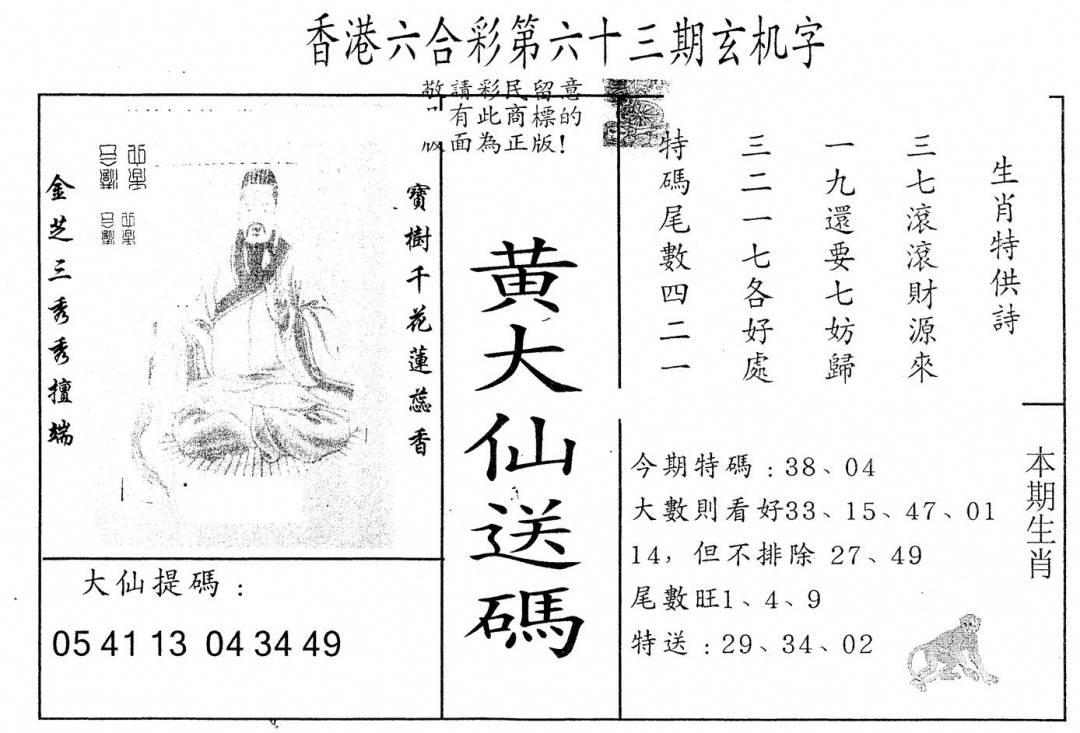 香港六合彩第六十三期玄机字
敬請彩民留意
有此商標的
面為正版！
寶樹千花蓮蕊香
金芝三秀秀擅端
大仙提碼：
05 41 13 04 34 49
黄大仙送碼
生肖特供詩
三七滾滾財源來
一九還要七妨歸
三二一七各好處
特碼尾數四二一
本期生肖
今期特碼：38、04
大數則看好33、15、47、01
14，但不排除 27、49
尾數旺1、4、9
特送：29、34、02